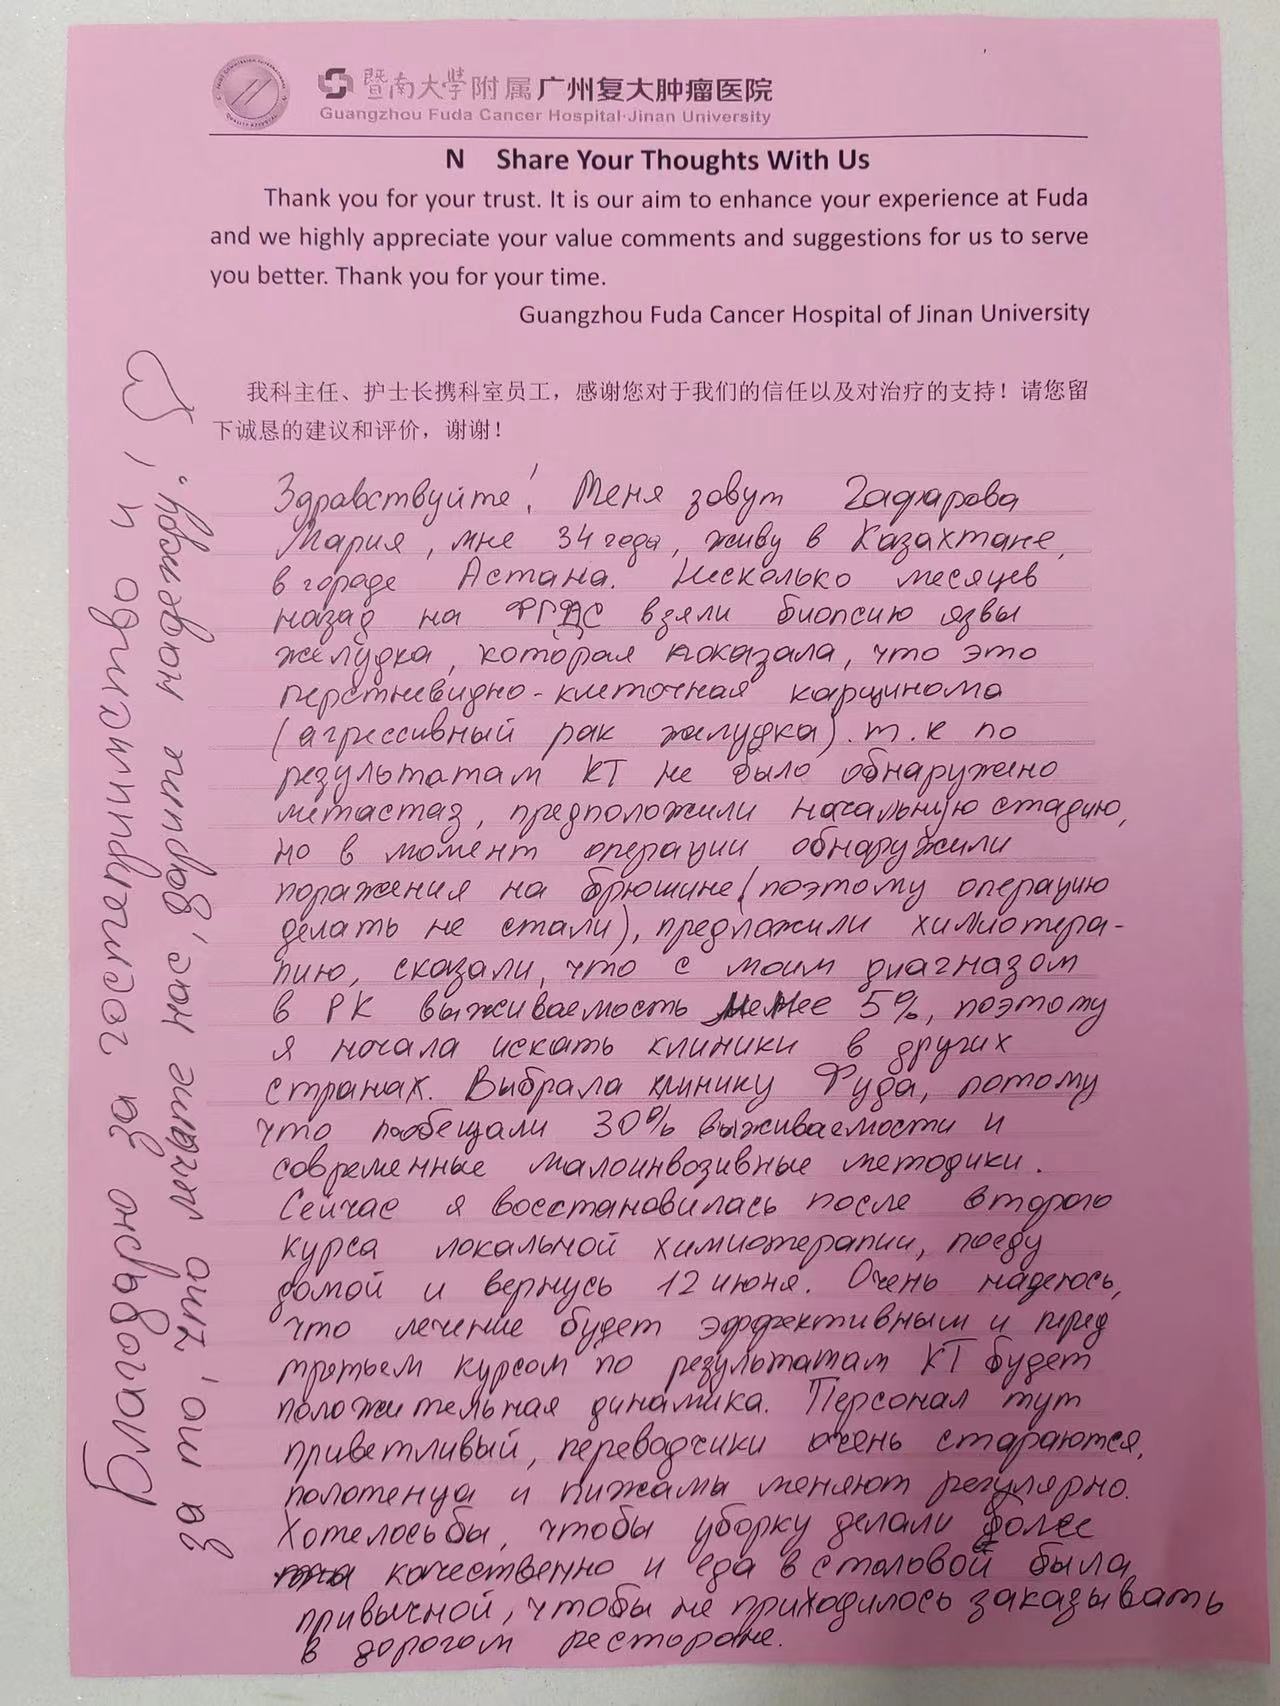 暨南大学附属广州复大肿瘤医院
Guangzhou Fuda Cancer Hospital·Jinan University
N Share Your Thoughts With Us
Thank you for your trust. It is our aim to enhance your experience at Fuda
and we highly appreciate your value comments and suggestions for us to serve
you better. Thank you for your time.
Guangzhou Fuda Cancer Hospital of Jinan University
我科主任、护士长携科室员工，感谢您对于我们的信任以及对治疗的支持！请您留
下诚恳的建议和评价，谢谢！
Здравствуйте! Меня зовут Гафарова
Мария, мне 34 года, живу в Казахтане,
в городе Астана. Несколько месяцев
назад на ФГДС взяли биопсию язвы
желудка, которая показала, что это
перстневидно-клеточная карцинома
(агрессивный рак желудка). т.к по
результатам КТ не было обнаружено
метастаз, предположили начальную стадию,
но в момент операции обнаружили
поражения на брюшине (поэтому операцию
делать не стали), предложили химиотера-
пию, сказали, что с моим диагназом
в РК выживаемость менее 5%, поэтому
я начала искать клиники в других
странах. Выбрала клинику Фуда, потому
что пообещали 30% выживаемости и
современные малоинвозивные методики.
Сейчас я восстановилась после второго
курса локальной химиотерапии, поеду
домой и вернусь 12 июня. Очень надеюсь,
что лечение будет эффективным и перед
третьем курсом по результатам КТ будет
положительная динамика. Персонал тут
приветливый, переводчики очень стараются,
полотенца и пижамы меняют регулярно.
Хотелось бы, чтобы уборку делали более
качественно и еда в столовой была
привычной, чтобы не приходилось заказывать
в дорогом ресторане.
Благодарю за гостеприимство, и
за то, что лечите нас, дарите надежду.